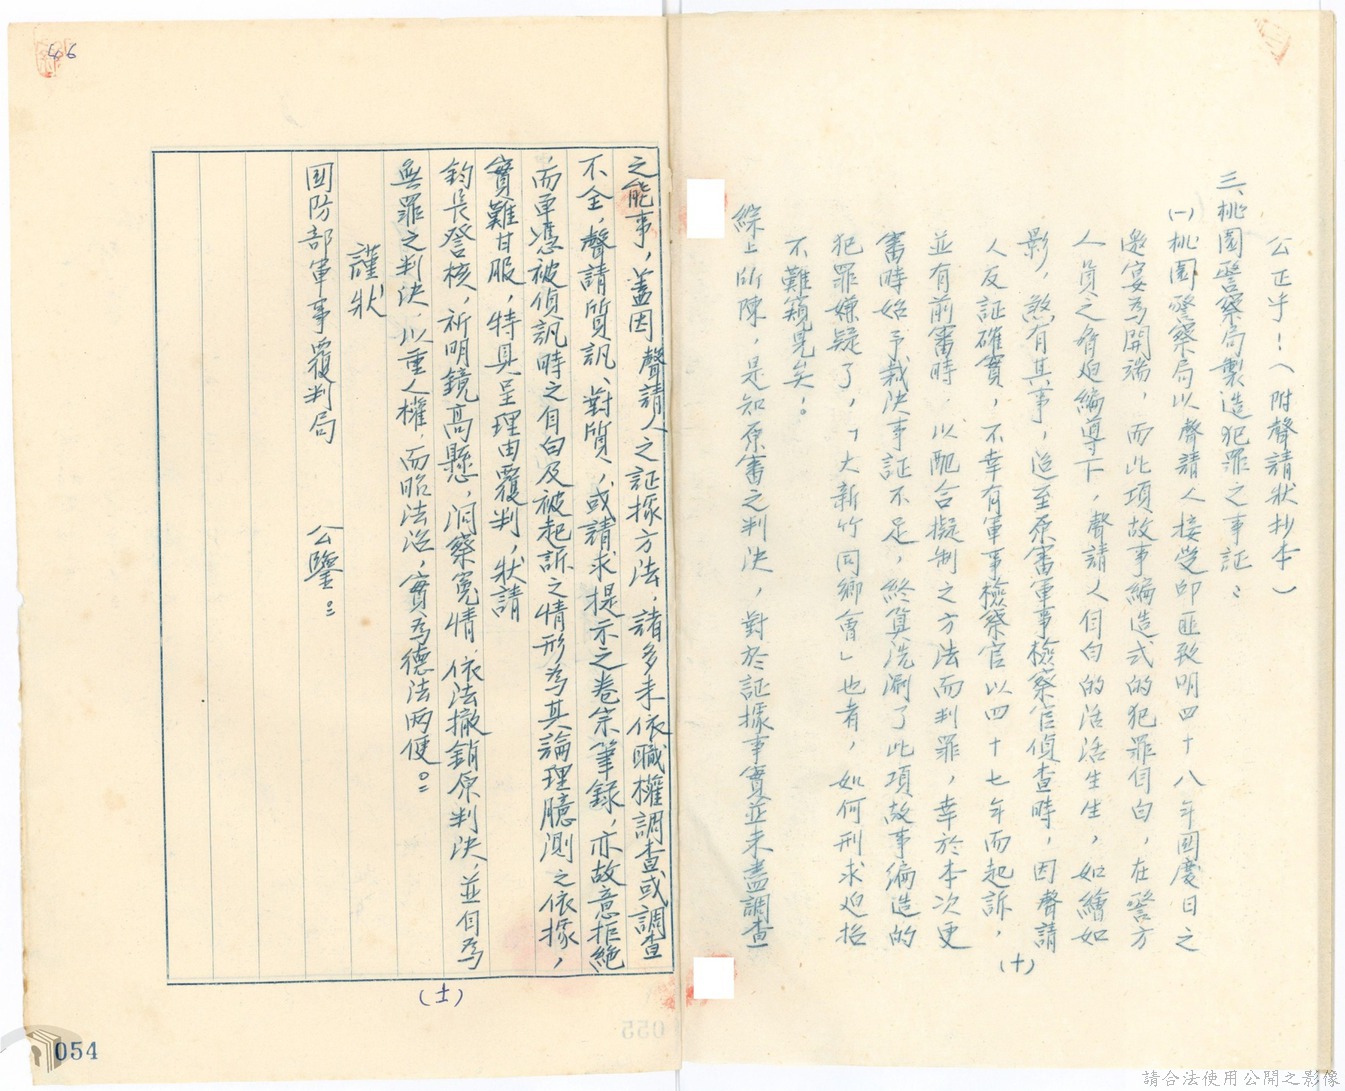 公正乎！（附聲請狀抄本）
三、桃園警察局製造犯罪之事証：
(一)桃園警察局以聲請人接受邱匪致明四十八年國慶日之
邀宴為開端，而此項故事編造式的犯罪自白，在警方
人員之脅迫編導下，聲請人自白的活活生生，如繪如
影，煞有其事，迨至原審軍事檢察官偵查時，因聲請
人反証確實，不幸有軍事檢察官以四十七年而起訴，
並有前審時，以配合擬制之方法而判罪，幸於本次更
審時始予裁決事証不足，終算洗涮了此項故事編造的
犯罪嫌疑了，「大新竹同鄉會」也者，如何刑求迫招
不難窺見矣。
綜上所陳，是知原審之判決，對於証據事實並未盡調查
(十)
之能事，蓋因聲請人之証據方法，諸多未依職權調查或調查
不全，聲請質訊、對質、或請求提示之卷宗筆錄，亦故意拒絕
，而單憑被偵訊時之自白及被起訴之情形為其論理臆測之依據，
實難甘服，特具呈理由覆判，狀請
鈞長詧核，祈明鏡高懸，洞察冤情，依法撤銷原判決，並自為
無罪之判決，以重人權，而昭法治，實為德法兩便。
謹狀
國防部軍事覆判局　公鑒。
(十一)
46
054
055
請合法使用公開之影像